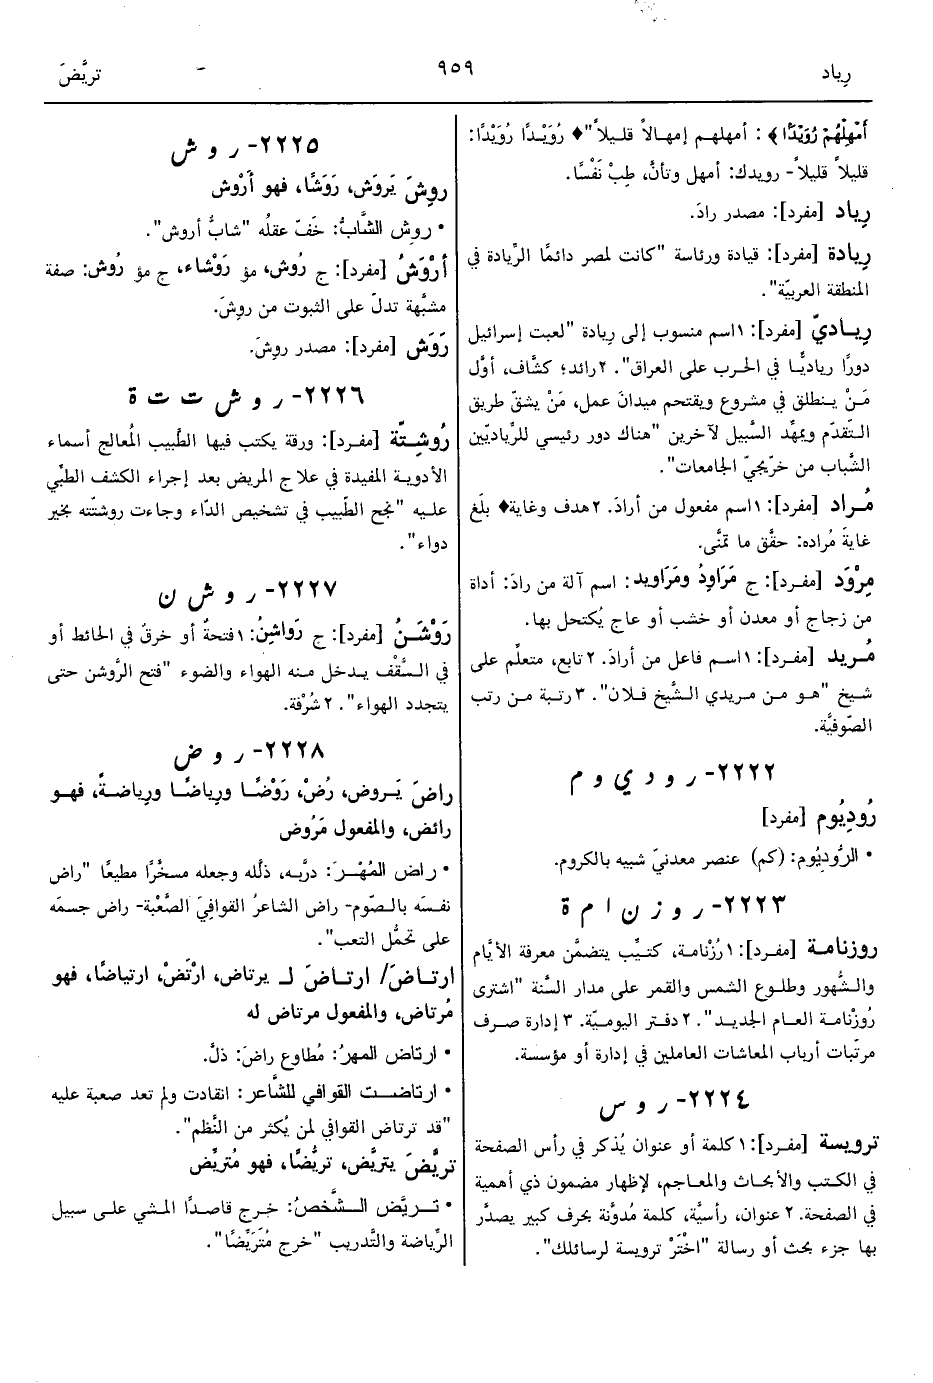 رِياد
٩٥٩
تريَّضَ
أَمْهِلْهُمْ رُوَيْدًا﴾: أمهلهم إمهالاً قليلاً"♦ رُوَيْدًا رُوَيْدًا:
قليلاً قليلاً- رويدك: أمهل وتأنَّ، طِبْ نَفْسًا.
رِياد [مفرد]: مصدر رادَ.
رِيادة [مفرد]: قيادة ورئاسة "كانت لمصر دائمًا الرِّيادة في
المنطقة العربيّة".
رِياديّ [مفرد]: ١اسم منسوب إلى رِيادة "لعبت إسرائيل
دورًا رياديًّا في الحرب على العراق". ٢رائد؛ كشَّاف، أوَّل
مَنْ ينطلق في مشروع ويقتحم ميدانَ عمل، مَنْ يشقّ طريق
التّقدّم ويمهِّد السَّبيل لآخرين "هناك دور رئيسي للرِّياديّين
الشَّباب من خرّيجيّ الجامعات".
مُراد [مفرد]: ١اسم مفعول من أرادَ. ٢هدف وغاية♦ بلَغ
غايةَ مُراده: حقَّق ما تمنَّى.
مِرْوَد [مفرد]: ج مَرَاوِدُ ومَرَاويد: اسم آلة من رادَ: أداة
من زجاج أو معدن أو خشب أو عاج يُكتحل بها.
مُريد [مفرد]: ١اسم فاعل من أرادَ. ٢تابع، متعلِّم على
شيخ "هو من مريدي الشَّيخ فلان". ٣رتبة من رتب
الصّوفيَّة.
٢٢٢٢- ر و د ي و م
رُودِيُوم [مفرد]
• الرُّودِيُوم: (كم) عنصر معدنيّ شبيه بالكروم.
٢٢٢٣- ر و ز ن ا م ة
روزنامة [مفرد]: ١رُزْنامة، كتيِّب يتضمَّن معرفة الأيَّام
والشُّهور وطلوع الشمس والقمر على مدار السَّنة "اشترى
رُوزْنامة العام الجديد". ٢دفتر اليوميّة. ٣إدارة صرف
مرتّبات أرباب المعاشات العاملين في إدارة أو مؤسسة.
٢٢٢٤- ر و س
ترويسة [مفرد]: ١كلمة أو عنوان يُذكر في رأس الصفحة
في الكتب والأبحاث والمعاجم، لإظهار مضمون ذي أهمية
في الصفحة. ٢عنوان، رأسيَّة، كلمة مُدوَّنة بحرف كبير يصدَّر
بها جزء بحث أو رسالة "اخْتَرْ ترويسة لرسائلك".
٢٢٢٥- ر و ش
روِشَ يَروَش، رَوَشًا، فهو أَرْوش
• روِش الشَّابُّ: خَفّ عقلُه "شابٌّ أروش".
أَرْوَشُ [مفرد]: ج رُوش، مؤ رَوْشاء، ج مؤ رُوش: صفة
مشبَّهة تدلّ على الثبوت من روِشَ.
رَوَش [مفرد]: مصدر روِشَ.
٢٢٢٦- ر و ش ت ت ة
رُوشِتَّة [مفرد]: ورقة يكتب فيها الطَّبيب المُعالج أسماء
الأدوية المفيدة في علاج المريض بعد إجراء الكشف الطبّي
عليه "نجح الطّبيب في تشخيص الدّاء وجاءت روشتّته بخير
دواء".
٢٢٢٧- ر و ش ن
رَوْشَنُ [مفرد]: ج رَواشِنُ: ١فتحةٌ أو خرقٌ في الحائط أو
في السَّقْف يدخل منه الهواء والضوء "فتح الرَّوشن حتى
يتجدد الهواء". ٢شُرْفة.
٢٢٢٨- ر و ض
راضَ يَروض، رُضْ، رَوْضًا ورِياضًا ورِياضةً، فهو
رائض، والمفعول مَرُوض
• راض المُهْرَ: درَّبه، ذلّله وجعله مسخَّرًا مطيعًا "راض
نفسَه بالصّوم- راض الشاعرُ القوافيَ الصَّعْبة- راض جسمَه
على تحمُّل التعب".
ارتاضَ/ ارتاضَ لـ يرتاض، ارْتَضْ، ارتياضًا، فهو
مُرتاض، والمفعول مرتاض له
• ارتاض المهرُ: مُطاوع راضَ: ذلَّ.
• ارتاضت القوافي للشَّاعر: انقادت ولم تعد صعبة عليه
"قد ترتاض القوافي لمن يُكثر من النَّظم".
تريَّضَ يتريَّض، تريُّضًا، فهو مُتريِّض
• تريَّض الشَّخصُ: خرج قاصدًا المشي على سبيل
الرِّياضة والتَّدريب "خرج مُتَرَيِّضًا".